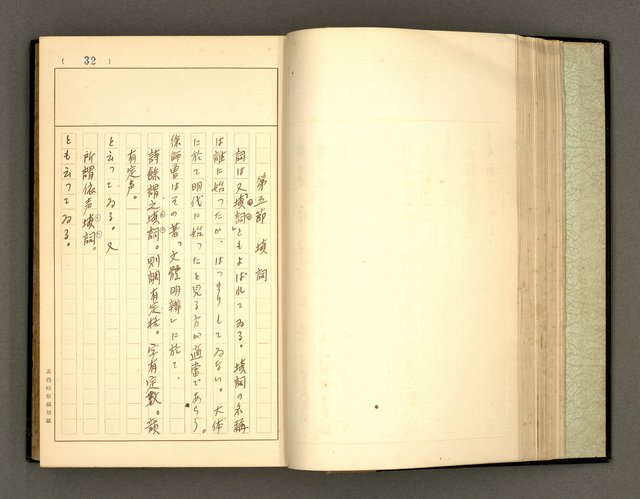 ( 32 )
第五節 填詞
詞は又「填詞」ともよばれてゐる。填詞の名稱
は誰に始つたか、はつきりしてゐない。大体
に於て明代に始つたと見る方が適當であらう。
徐師曾はその著「文體明辯」に於て、
詩餘謂之填詞。則調有定格。字有定數。韻
有定声。
と云つてゐる。又
所謂依声填詞。
とも云つてゐる。
黃得時原稿用紙